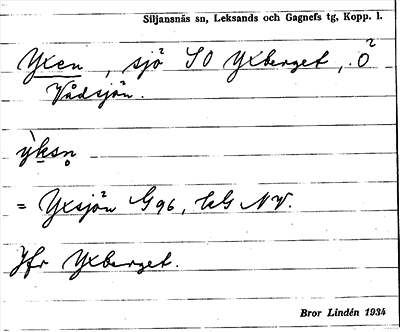 Siljansnäs sn, Leksands och Gagnefs tg, Kopp. l.
Yxen, sjö SO Yxberget, O
Vådsjön.
ỳksn̥
= Yxsjön G96, kG NV.
Jfr Yxberget.
Bror Lindén 1934